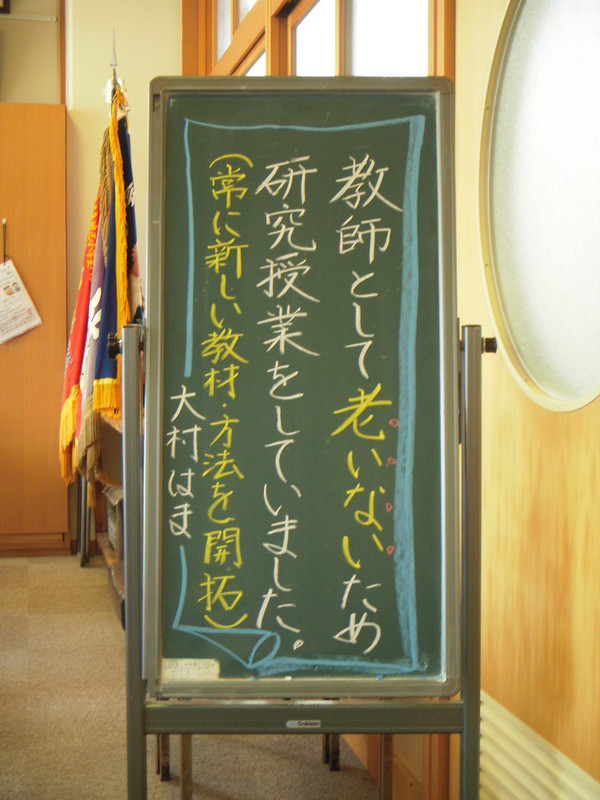 教師として老いないため
研究授業をしていました。
(常に新しい教材・方法を開拓)
大村はま
Gakken